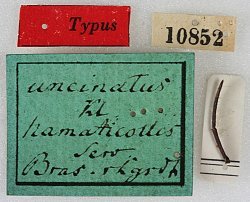 Typus
10852
uncinatus
Kl
hamaticollis
Serv
Bras.